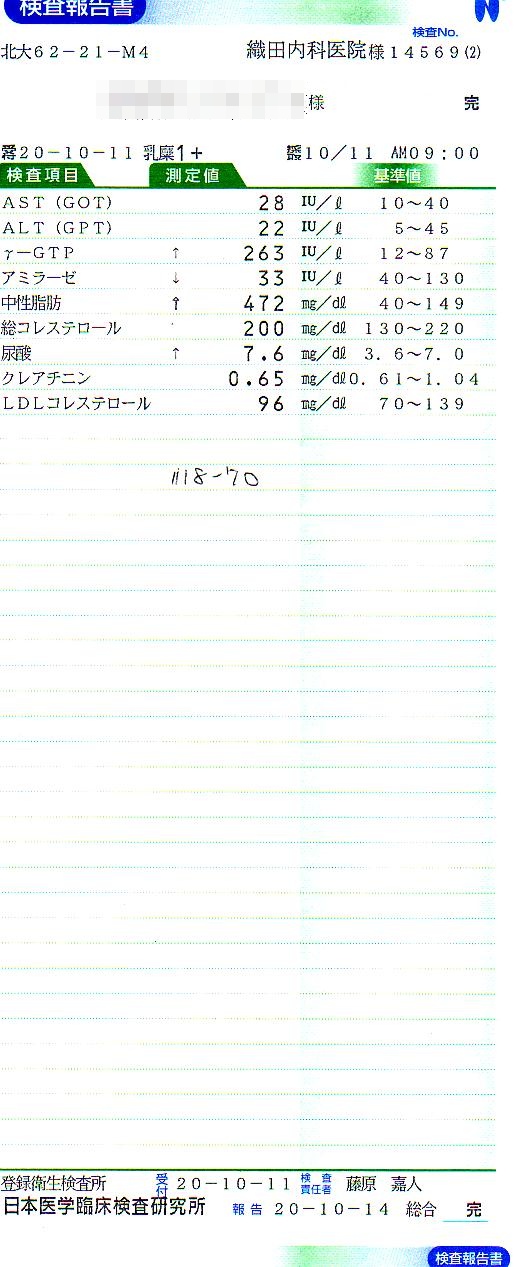 検査報告書
検査No.
北大62-21-M4 織田内科医院様 14569(2)
様 完
20-10-11 乳糜1+ 10/11 AM09:00
検査項目 測定値 基準値
AST(GOT) 28 IU/ℓ 10～40
ALT(GPT) 22 IU/ℓ 5～45
γ-GTP ↑ 263 IU/ℓ 12～87
アミラーゼ ↓ 33 IU/ℓ 40～130
中性脂肪 ⇑ 472 mg/dℓ 40～149
総コレステロール 200 mg/dℓ 130～220
尿酸 ↑ 7.6 mg/dℓ 3.6～7.0
クレアチニン 0.65 mg/dℓ 0.61～1.04
LDLコレステロール 96 mg/dℓ 70～139
118-70
登録衛生検査所 受付 20-10-11 検査責任者 藤原 嘉人
日本医学臨床検査研究所 報告 20-10-14 総合 完
検査報告書